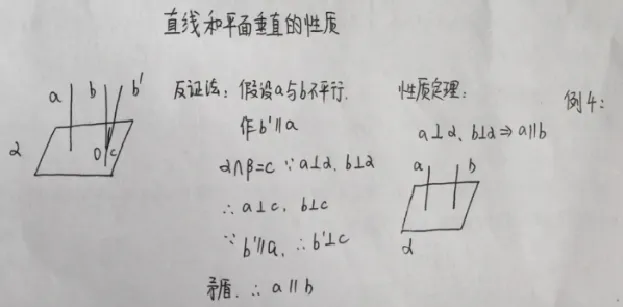 直线和平面垂直的性质
a
b
b'
α
O
c
反证法：假设a与b不平行.
作b'∥a
α∩β=c ∵a⊥α, b⊥α
∴a⊥c, b⊥c
∵b'∥a, ∴b'⊥c
矛盾. ∴a∥b
性质定理：
a⊥α、b⊥α⇒a∥b
a
b
α
例4：